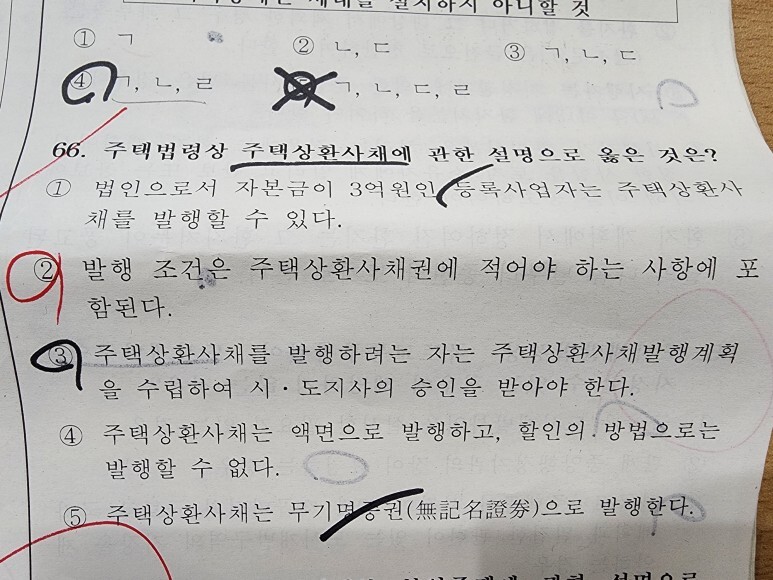 ① ㄱ ② ㄴ, ㄷ ③ ㄱ, ㄴ, ㄷ
④ ㄱ, ㄴ, ㄹ ㄱ, ㄴ, ㄷ, ㄹ
66. 주택법령상 주택상환사채에 관한 설명으로 옳은 것은?
① 법인으로서 자본금이 3억원인 등록사업자는 주택상환사
채를 발행할 수 있다.
② 발행 조건은 주택상환사채권에 적어야 하는 사항에 포
함된다.
③ 주택상환사채를 발행하려는 자는 주택상환사채발행계획
을 수립하여 시·도지사의 승인을 받아야 한다.
④ 주택상환사채는 액면으로 발행하고, 할인의 방법으로는
발행할 수 없다.
⑤ 주택상환사채는 무기명증권(無記名證券)으로 발행한다.